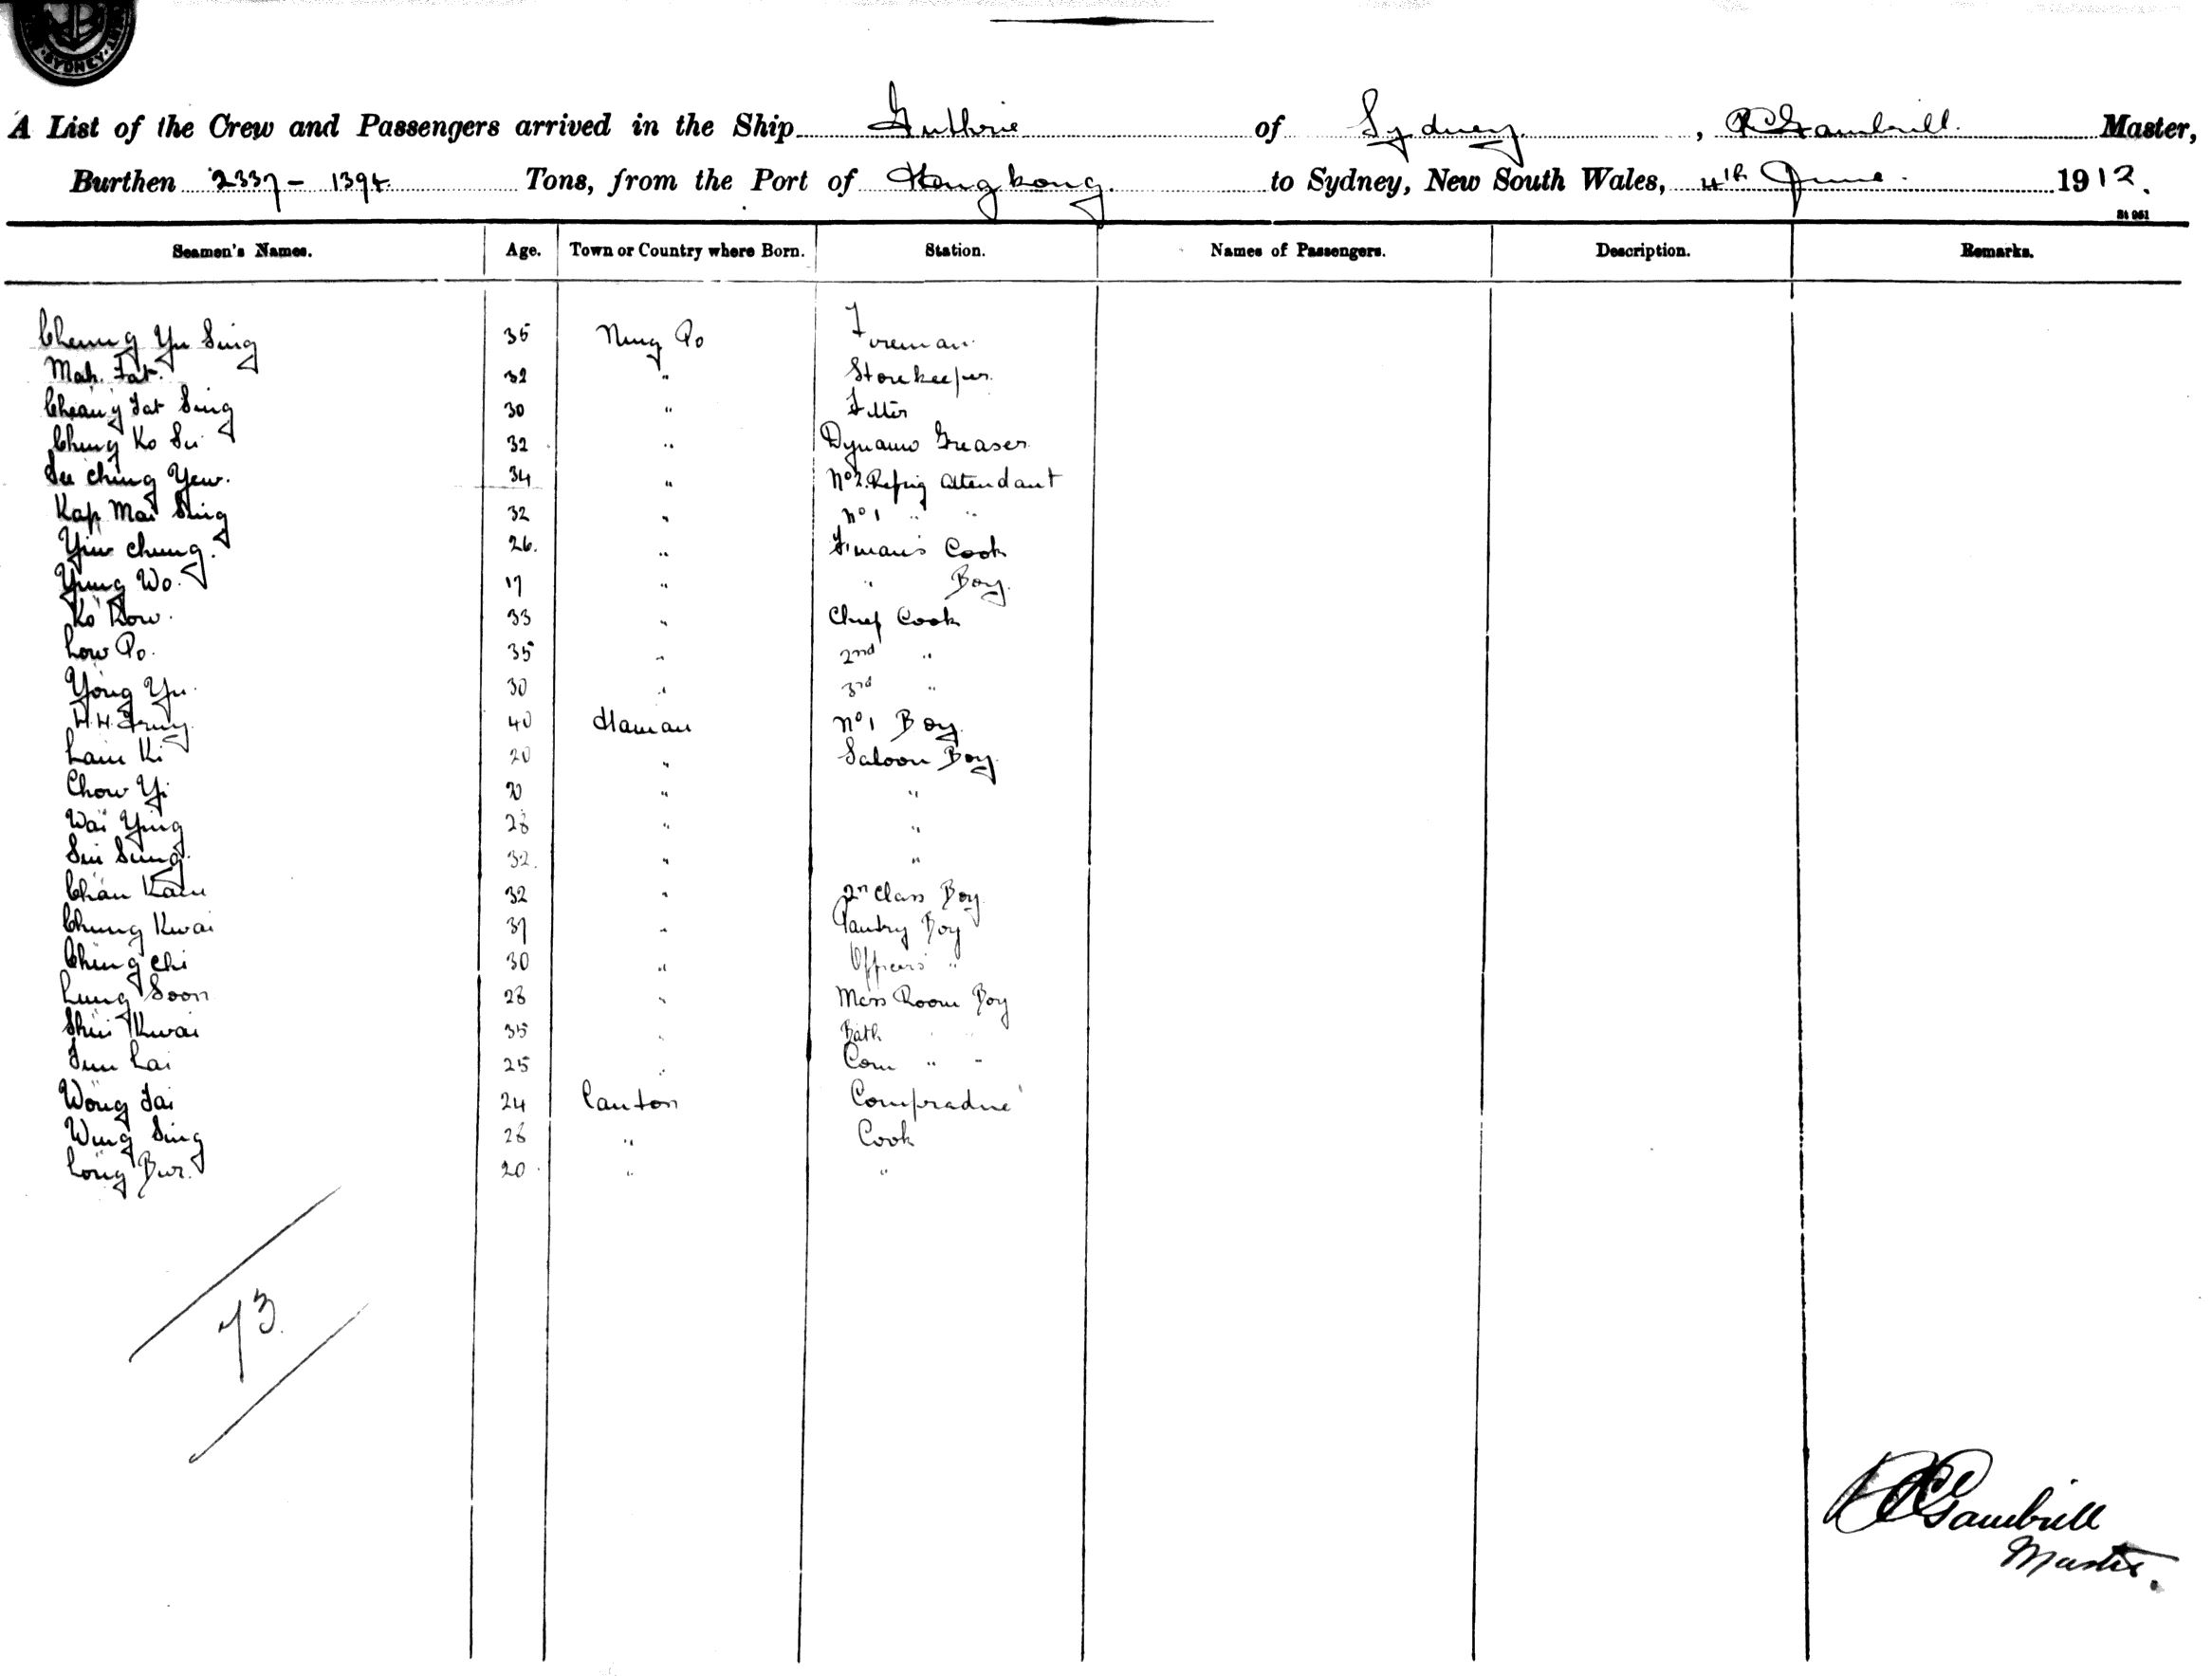 SYDNEY
A List of the Crew and Passengers arrived in the Ship Guthrie of Sydney, R C Gambrill. Master,
Burthen 2337 - 1394. Tons, from the Port of Hong kong. to Sydney, New South Wales, 4th June. 1912.
St 961
Seamen's Names. Age. Town or Country where Born. Station. Names of Passengers. Description. Remarks.
Cheung Yu Sing 35 Ning Po Foreman.
Mah Fat. 32 " Storekeeper.
Cheang Fat Sing 30 " Fitter
Ching Ko Su 32 " Dynamo Greaser
See Ching Yew. 34 " No 2. Refrig Attendant
Kap Mai Sing 32 " No 1 " "
Yiu Chung. 26. " F'man's Cook
Yung Wo. 17 " " Boy.
Ko Kow. 33 " Chief Cook
Low Po. 35 " 2nd "
Yong Yu. 30 " 3rd "
H. H. 40 Hainan No 1 Boy.
Lam Ki 20 " Saloon Boy
Chow Yi 20 " "
Wai Ying 28 " "
Sui Sung. 32. " "
Chan Kam 32 " 2n Class Boy.
Chung Kwai 37 " Pantry Boy
Ching Chi 30 " Officers "
Lung Soon 28 " Mess Room Boy
Shui Kwai 35 " Bath " "
Lai 25 " Com " "
Wong Tai 24 Canton Compradore
Wing Sing 28 " Cook
Long 20 " "
73.
R C Gambrill
Master.